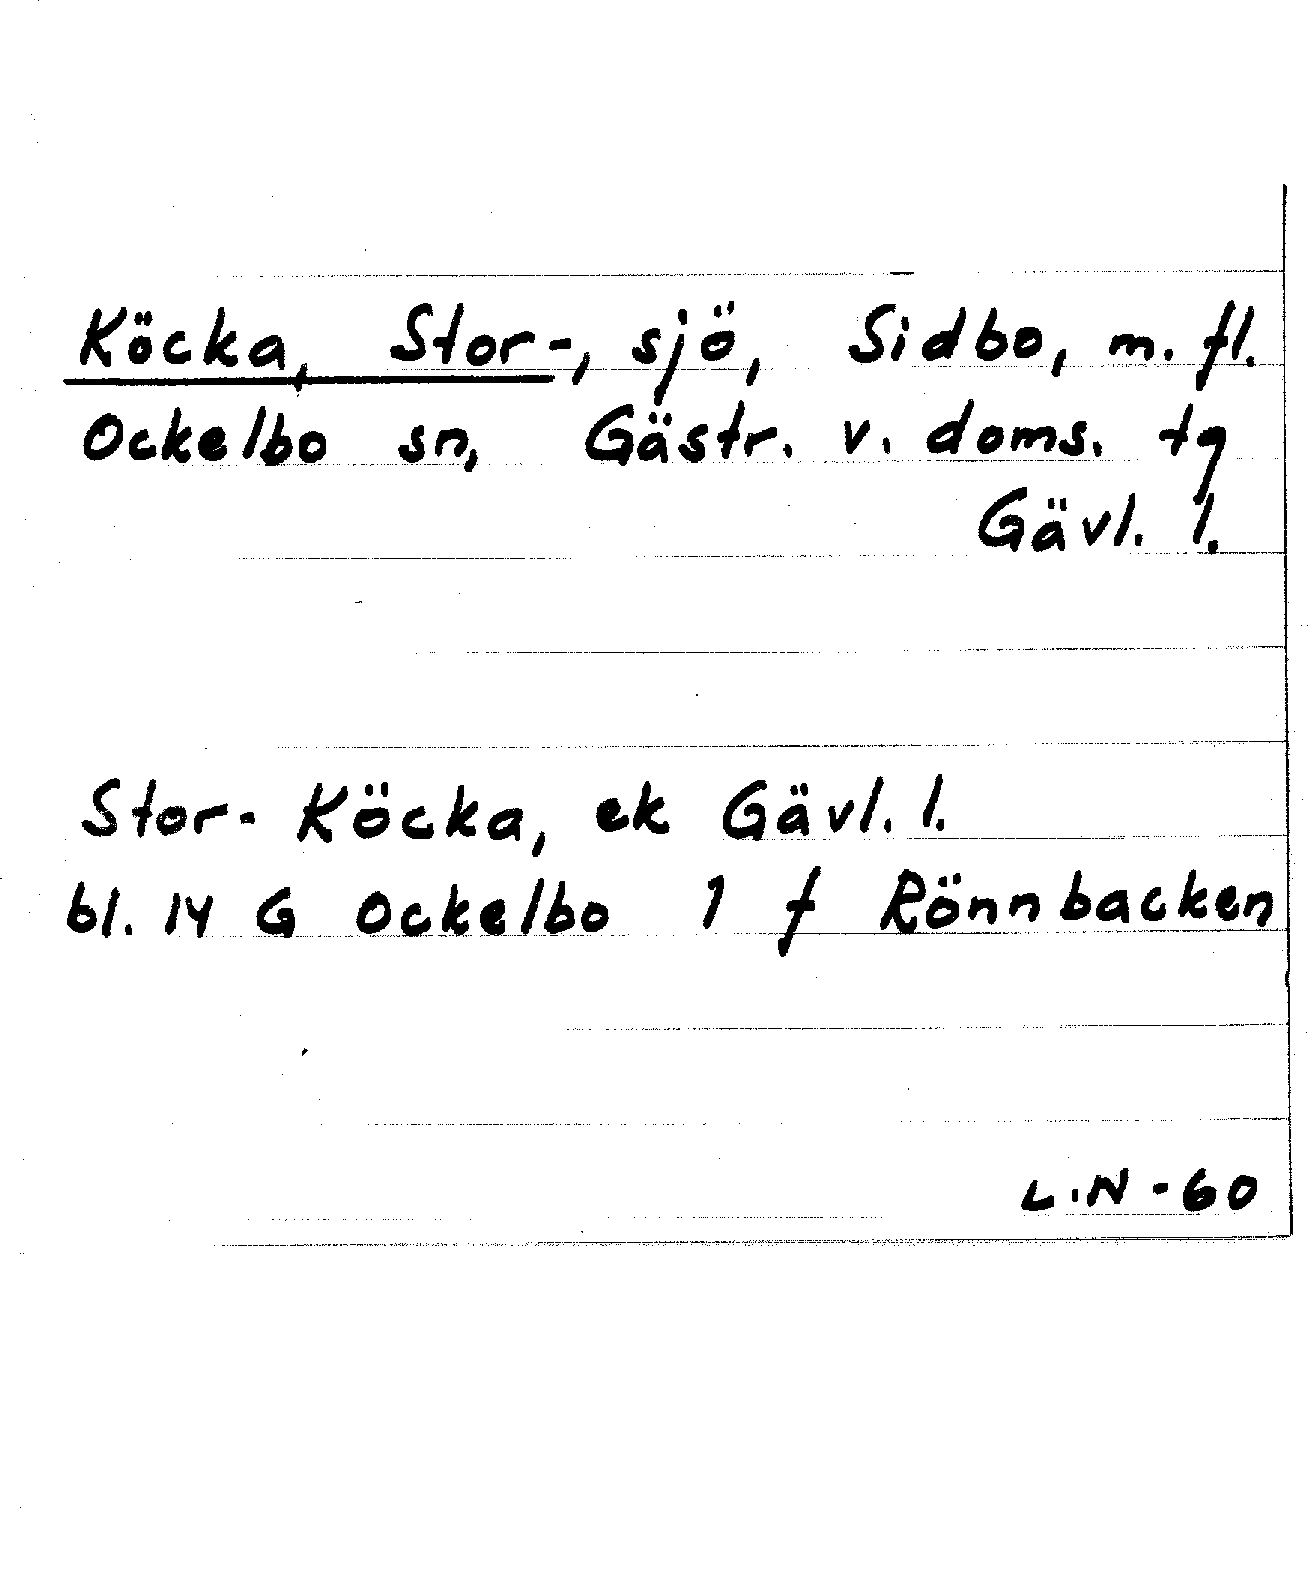 Köcka, Stor-, sjö, Sidbo, m. fl.
Ockelbo sn, Gästr. v. doms. tg
Gävl. l.
Stor- Köcka, ek Gävl. l.
bl. 14 G Ockelbo 1 f Rönnbacken
L.N - 60